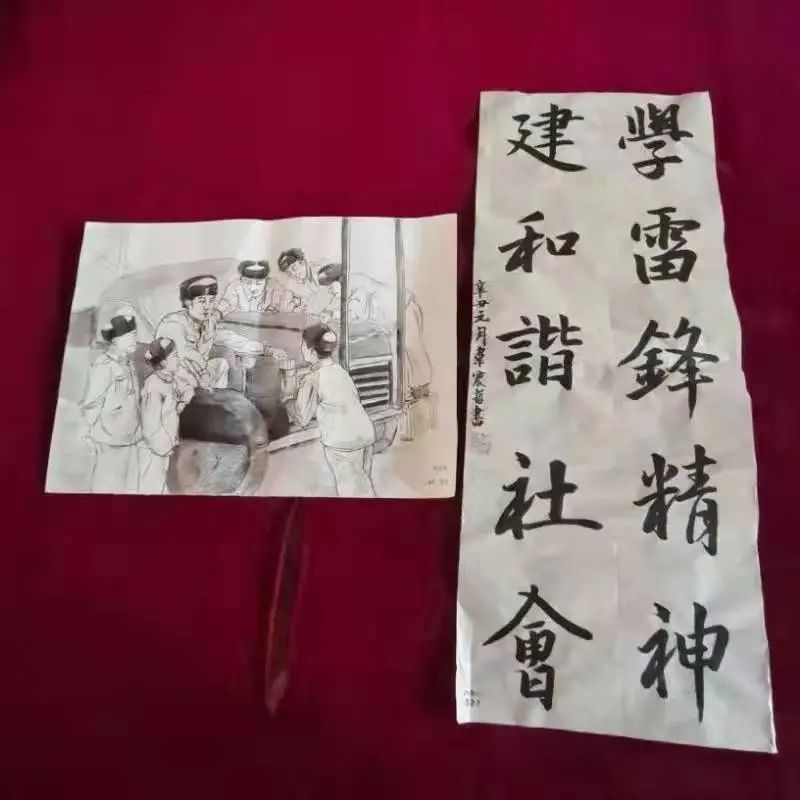 學雷鋒精神
建和諧社會
辛丑元月韋宸省書